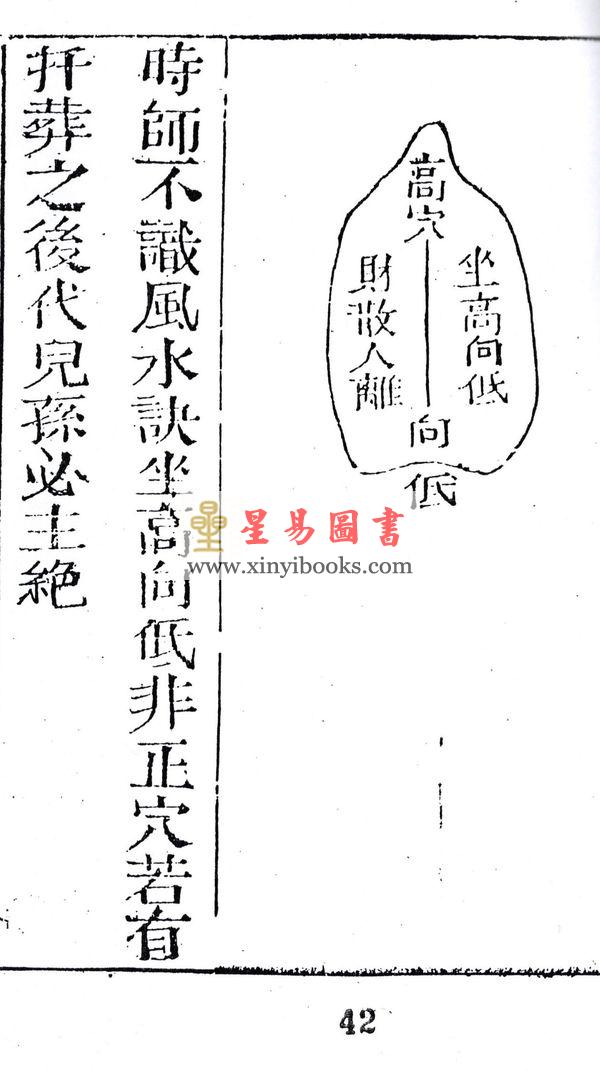 高穴
坐高向低
財散人離
向
低
時師不識風水訣坐高向低非正穴若有
扦葬之後代兒孫必主絶
星易圖書
www.xinyibooks.com
42